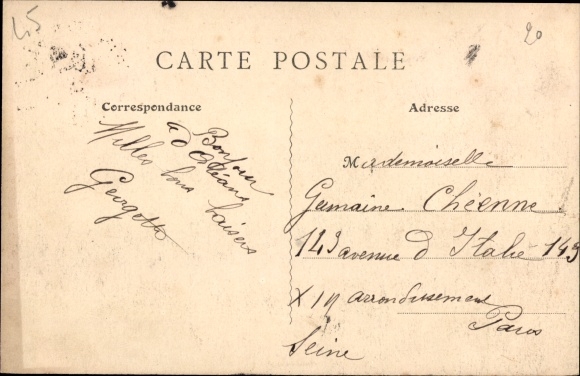 25
20
CARTE POSTALE
Correspondance
Adresse
Bonjour
d Orléans
Milles bons baisers
Georgette
Mademoiselle
Germaine Chéenne
143 avenue d Italie 143
XIII arrondissement
Paris
Seine